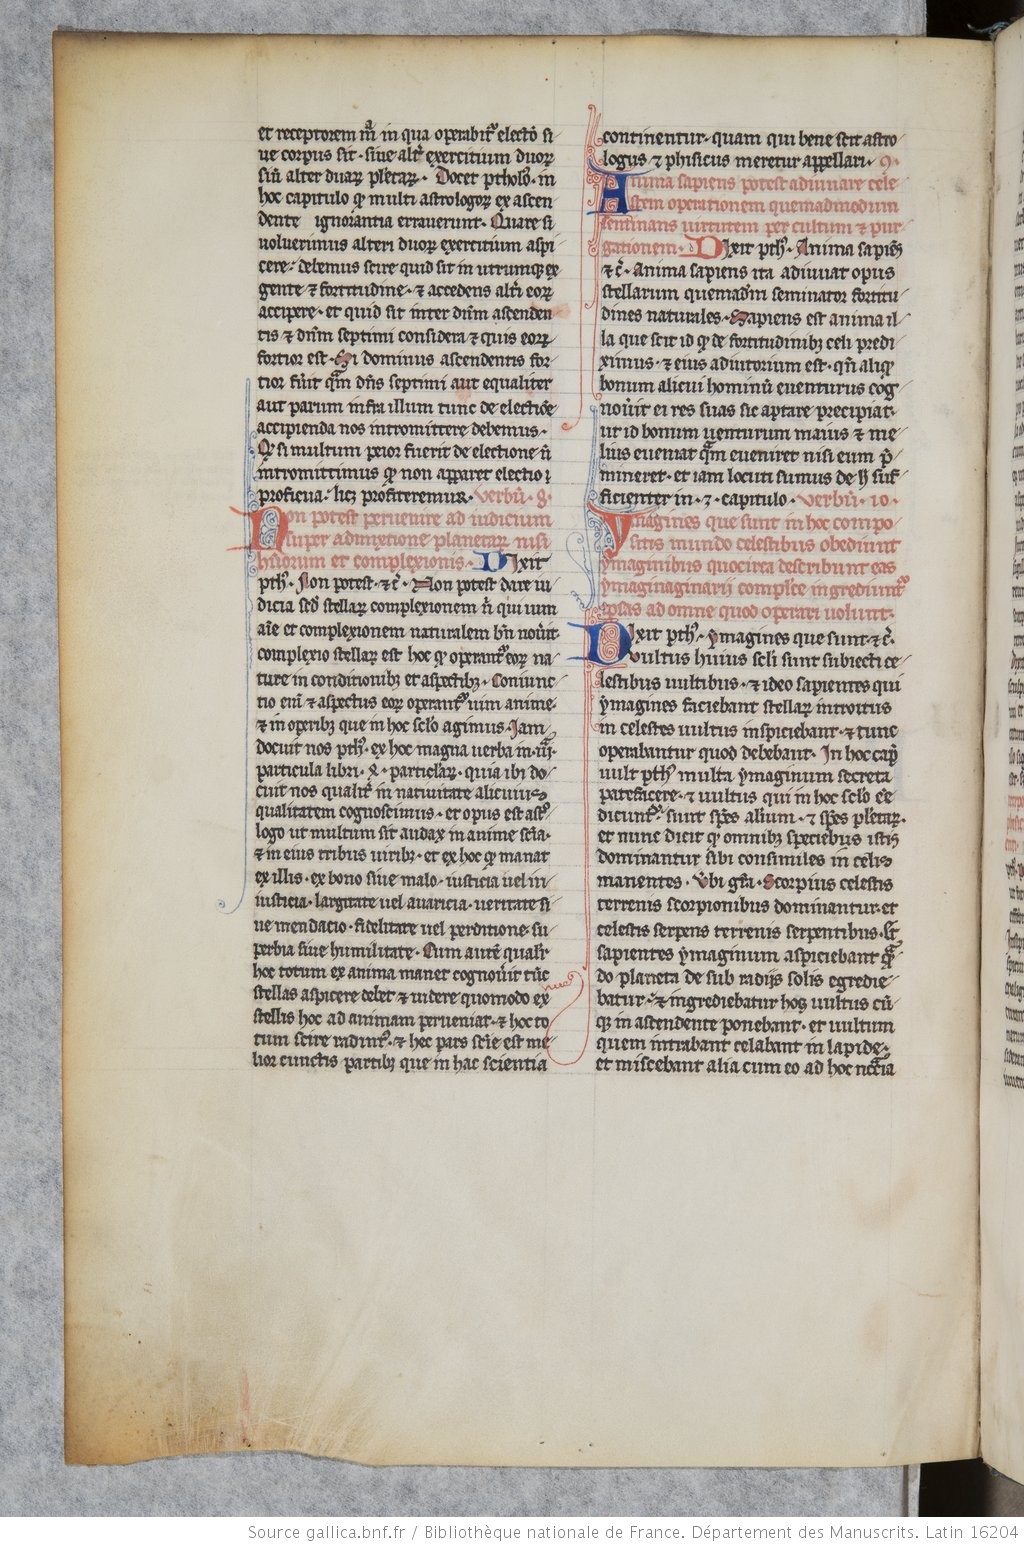 et receptorem mͣ in qua operabitᷣ electō si
ue corpus sit · siue altᷣ exercitium duoꝝ
siń alter duaꝝ pletaꝝ · Docet ptholoᷣ · in
hoc capitulo qͦ multi astrologoꝝ ex ascen
dente ignorantia errauerunt · Quare si
uoluerimus alteri duoꝝ exercitium aspi
cere · debemus scire quid sit in utrumqꝫ ex
gente ⁊ fortitudine · ⁊ accedens altī eoꝝ
accipere · et quid sit inter dnm̄ ascenden
tis ⁊ dnm̄ septimi considera ⁊ quis eoꝝ
fortior est · Si dominus ascendentis for
tior fuīt qͣm dn̄s septimi aut equaliter
aut parum infra illum tunc de electiōe
accipienda nos intromittere debemus ·
Qᷣ si multum peior fuerit de electione n̄
intromittimus qͦ non apparet electio ɿ
proficua · licꝫ profiteremur · Verbū · 8 ·
Non potest peruenire ad iudicium
super admixtione planetaꝝ nisi
huīorum et complexionis · Dixit
ptħ · Non potest · ⁊ c̄ · Non potest dare iu
dicia sed᷒ stellaꝝ complexionem n̄ qui uim
aīe et complexionem naturalem bn̄ nouīt
complexio stellaꝝ est hoc qͦ operantᷣ eoꝝ na
ture in conditionibꝫ et aspectibꝫ · Coniunc
tio enī ⁊ aspectus eoꝝ operantᷣ uim anime ·
⁊ in operibꝫ que in hoc sclo᷒ agimus · Iam
docuit nos ptħ · ex hoc magna uerba in · iiiͣ ·
particula libri · x̄ · particl̄aꝝ · quia ibi do
cuit nos qualitᷣ in natiuitate alicuius
qualitatem cognoscimus · et opus est astᷣ
logo ut multum sit audax in anime scīa ·
⁊ in eius tribus uiribꝫ · et ex hoc qͦ manat
ex illis · ex bono siue malo · iusticia uel in
iusticia · largitate uel auaricia · ueritate si
ue mendacio · fidelitate uel perditione · su
perbia siue humilitate · Cum autē qualitᷣ
hoc totum ex anima manet cognouīt tūc
stellas aspicere debet ⁊ uidere quomodo ex
stellis hoc ad animam perueniat · ⁊ hoc to
tum scire uidintᷣ · ⁊ hec pars scīe est me
lior cunctis partibꝫ que in hac scientia
continentur · quam qui bene scit astro
logus ⁊ phisicus meretur appellari · 9 ·
Anima sapiens potest adiuuare cele
stem operationem quemadmodum
seminans uirtutem per cultum ⁊ pur
gationem · Dixit ptħ · Anima sapiēs
⁊ c̄ · Anima sapiens ita adiuuat opus
stellarum quemadm̄ seminator fortitu
dines naturales · Sapiens est anima il
la que scit id qͦ de fortitudinibꝫ celi predi
ximus · ⁊ eius adiutorium est · qn̄ aliqͦ
bonum alicui hominū euenturus cog
nouīt ei res suas sic aptare precipiat ·
ut id bonum uenturum maius ⁊ me
lius eueniat qͣm eueniret nisi eum p̄
mineret · et iam locuti sumus de ħ suf
ficienter in · 2 · capitulo · Verbū · 10 ·
Ymagines que sunt in hoc compo
sitis mundo celestibus obediunt
ymaginibus quocirca describunt eas
ymaginaginarii complc̄e ingrediuntᷣ
ipsas ad omne quod operari uolunt ·
Dixit ptħ · ymagines que sunt · ⁊ c̄ ·
Vultus huius scl̄i sunt subiecti ce
lestibus uultibus · ⁊ ideo sapientes qui
ymagines faciebant stellaꝝ introitus
in celestes uultus inspiciebant · ⁊ tunc
operabantur quod debebant · In hoc cap᷒
uult ptħ multa ymaginum secreta
patefacere · ⁊ uultus qui in hoc sclo᷒ ēe
dicuntᷣ · sunt sp̄es alium · ⁊ sp̄es pletaꝝ ·
et nunc dicit qͦ omnibꝫ speciebus istis
dominantur sibi consimiles in celis
manentes · Vbi gr̄a · Scorpius celestis
terrenis scorpionibus dominantur · et
celestis serpens terrenis serpentibus · ⁊
sapientes ymaginum aspiciebant qͣn
do planeta de sub radijs solis egredie
batur · ⁊ ingrediebatur hoꝝ uultus eū
qꝫ in ascendente ponebant · et uultum
quem intrabant celabant in lapide ·
et miscebant alia cum eo ad hoc necc̄ia
Source gallica.bnf.fr / Bibliothèque nationale de France. Département des Manuscrits. Latin 16204